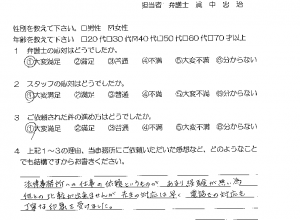 担当者 弁護士 眞中忠治
性別を教えて下さい。 □男性 ☑女性
年齢を教えて下さい。 □20代□30代☑40代□50代□60代□70才以上
1 弁護士の応対はどうでしたか。
①大変満足 ②満足 ③普通 ④不満 ⑤大変不満 ⑥分からない
2 スタッフの応対はどうでしたか。
①大変満足 ②満足 ③普通 ④不満 ⑤大変不満 ⑥分からない
3 ご依頼された件の進め方はどうでしたか。
①大変満足 ②満足 ③普通 ④不満 ⑤大変不満 ⑥分からない
4 上記1～3の理由、当事務所にご依頼いただいた感想など、どのようなこと
でも結構ですからお書きください。
法律事務所への仕事の依頼というものが あまり経験が無い為
他との比較が出来ませんが
丁寧な印象を受けました。